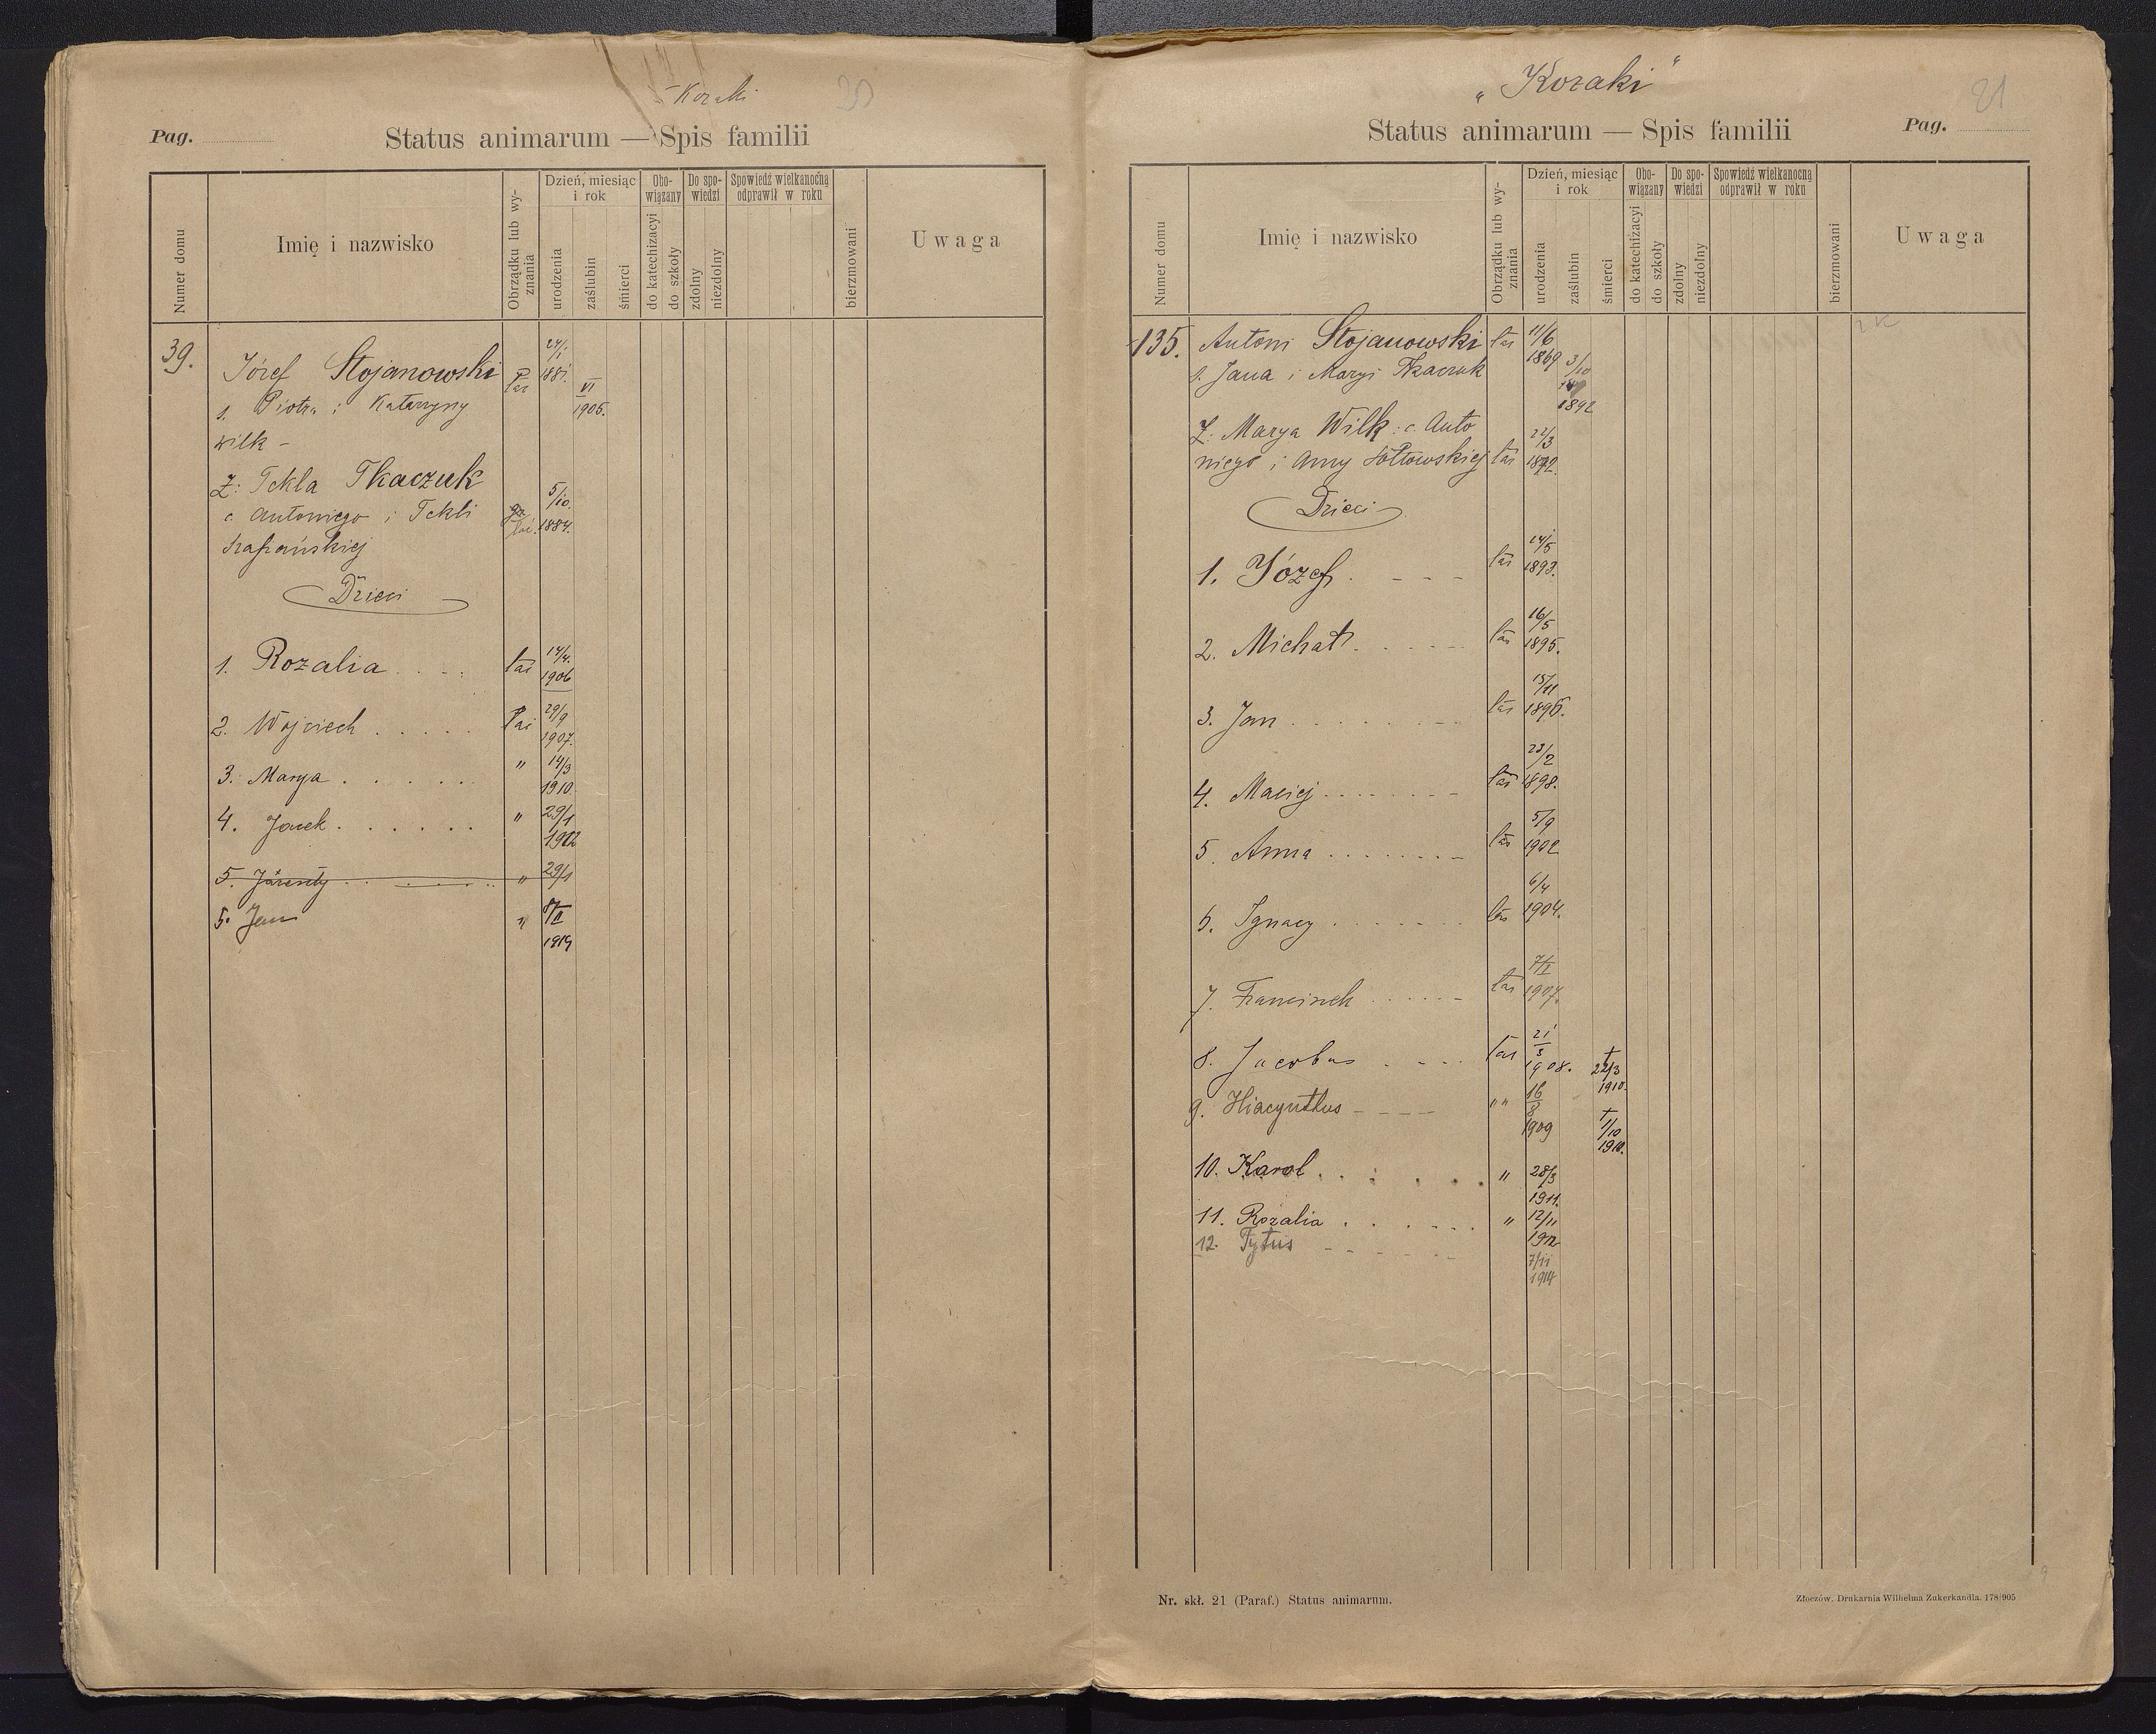 Koraki 20
Pag.
Status animarum — Spis familii
Numer domu
Imię i nazwisko
Obrządku lub wyznania
Dzień, miesiąc i rok
urodzenia
zaślubin
śmierci
Obowiązany
do katechizacyi
do szkoły
Do spowiedzi
zdolny
niezdolny
Spowiedź wielkanocną odprawił w roku
bierzmowani
Uwaga
39. Józef Stojanowski łać 24/1 1881.
s. Piotra i Katarzyny VI 1905.
Wilk –
Ż: Tekla Tkaczuk
c. Antoniego i Tekli gr łać. 5/10. 1884.
Dzieci
1. Rozalia . . . . łać 14/4. 1906
2. Wojciech . . . . . łać 29/9 1907.
3. Marya . . . . . . " 14/3 1910.
4. Jacek . . . . . . " 29/1 1912
5. " 29/1
5. Jan " II 1914
„Koraki" 21
Status animarum — Spis familii
Pag.
Numer domu
Imię i nazwisko
Obrządku lub wyznania
Dzień, miesiąc i rok
urodzenia
zaślubin
śmierci
Obowiązany
do katechizacyi
do szkoły
Do spowiedzi
zdolny
niezdolny
Spowiedź wielkanocną odprawił w roku
bierzmowani
Uwaga
135. Antoni Stojanowski łać 11/6 1869
s. Jana i Maryi Tkaczuk 3/10 1892
Ż: Marya Wilk: c. Anto
niego i Anny Sołtowskiej łać 22/3 1872.
Dzieci
1. Józef . – – – łać 24/5 1893.
2. Michał . . . . . łać 16/5 1895.
3. Jan . . . . . . . łać 15/11 1896.
4. Maciej . . . . . . . łać 23/2 1898.
5. Anna . . . . . . . łać 5/9 1902
6. Ignacy . . . . . . . łać 6/4 1904.
7. Franciszek . . . . . . łać 7/I 1907.
8. Jacobus . – – . łać 21/3 1908. † 22/3 1910.
9. Hiacynthus – – – – " " 16/8 1909 † 1/10 1910.
10. Karol . . . . . . " 28/3 1911.
11. Rozalia . . . . . . " 12/11 1912
12. Tytus – – – – – 7/11 1914
Nr. skł. 21 (Paraf.) Status animarum.
Złoczów. Drukarnia Wilhelma Zukerkandla. 178/905